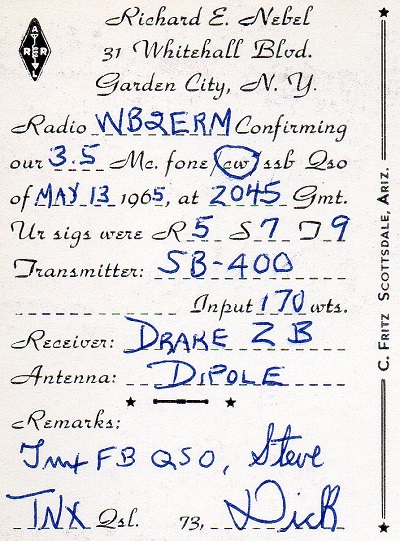 Richard E. Nebel
31 Whitehall Blvd.
Garden City, N. Y.
ARRL
Radio WB2ERM Confirming
our 3.5 Mc. fone cw ssb Qso
of MAY 13 1965, at 2045 Gmt.
Ur sigs were R 5 S 7 T 9
Transmitter: SB-400
Input 170 wts.
Receiver: DRAKE 2B
Antenna: DIPOLE
Remarks:
Tnx FB QSO, Steve
TNX Qsl. 73, Dick
C. FRITZ SCOTTSDALE, ARIZ.